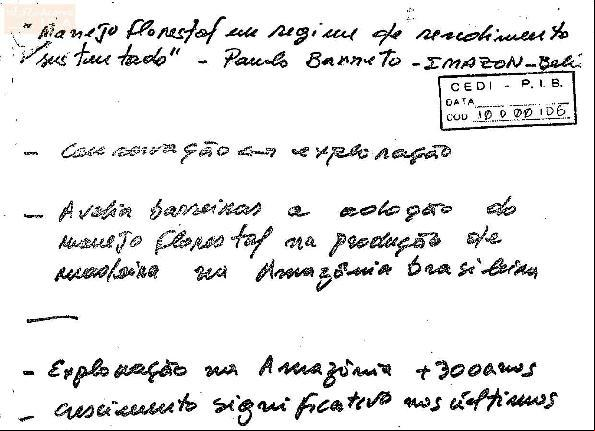 "Manejo florestal em regime de rendimento
sustentado" - Paulo Barreto - IMAZON - Belé
CEDI - P.I.B.
DATA
COD 10 D 00 106
- Conservação em exploração
- Avalia barreiras a adoção do
manejo florestal na produção de
madeira na Amazônia brasileira
- Exploração na Amazônia +300 anos
- crescimento significativo nos últimos